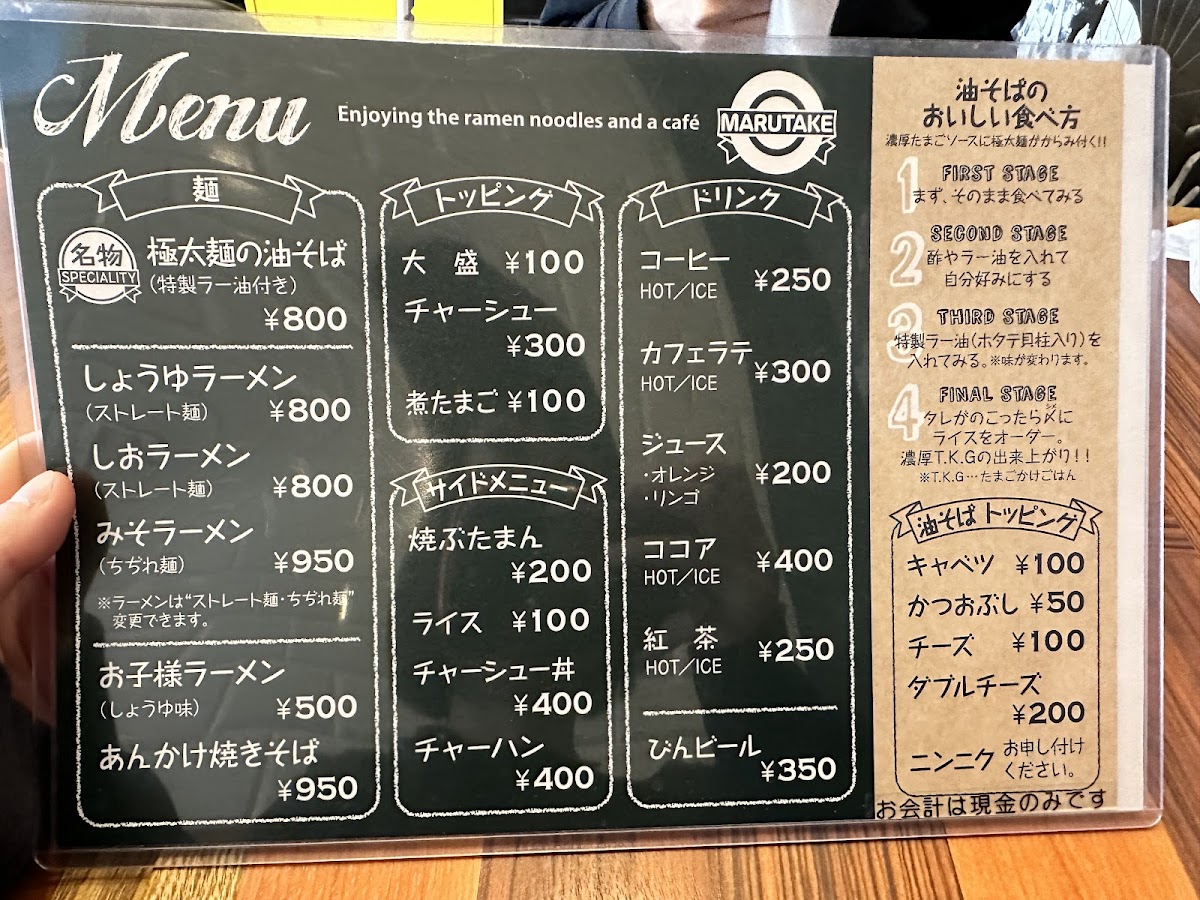 Menu
Enjoying the ramen noodles and a café
MARUTAKE
麺
名物
SPECIALITY
極太麺の油そば
(特製ラー油付き)
¥800
しょうゆラーメン
(ストレート麺) ¥800
しおラーメン
(ストレート麺) ¥800
みそラーメン
(ちぢれ麺) ¥950
※ラーメンは“ストレート麺・ちぢれ麺”
変更できます。
お子様ラーメン
(しょうゆ味) ¥500
あんかけ焼きそば
¥950
トッピング
大 盛 ¥100
チャーシュー
¥300
煮たまご ¥100
サイドメニュー
焼ぶたまん
¥200
ライス ¥100
チャーシュー丼
¥400
チャーハン
¥400
ドリンク
コーヒー
HOT/ICE ¥250
カフェラテ
HOT/ICE ¥300
ジュース
・オレンジ
・リンゴ
¥200
ココア
HOT/ICE ¥400
紅 茶
HOT/ICE ¥250
びんビール
¥350
油そばの
おいしい食べ方
濃厚たまごソースに極太麺がからみ付く!!
1 FIRST STAGE
まず、そのまま食べてみる
2 SECOND STAGE
酢やラー油を入れて
自分好みにする
3 THIRD STAGE
特製ラー油(ホタテ貝柱入り)を
入れてみる。※味が変わります。
4 FINAL STAGE
タレがのこったら〆(シメ)に
ライスをオーダー。
濃厚T.K.Gの出来上がり!!
※T.K.G…たまごかけごはん
油そばトッピング
キャベツ ¥100
かつおぶし ¥50
チーズ ¥100
ダブルチーズ
¥200
ニンニク お申し付け
ください。
お会計は現金のみです